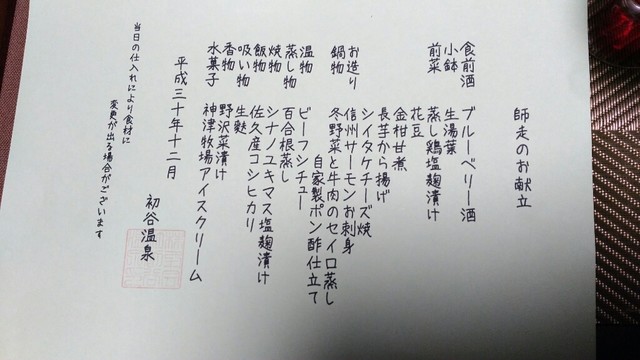 師走のお献立
食前酒 ブルーベリー酒
小鉢 生湯葉
前菜 蒸し鶏塩麹漬け
花豆
金柑甘煮
長芋から揚げ
シイタケチーズ焼
お造り 信州サーモンお刺身
鍋物 冬野菜と牛肉のセイロ蒸し
自家製ポン酢仕立て
温物 ビーフシチュー
蒸し物 百合根蒸し
焼物 シナノユキマス塩麹漬け
飯物 佐久産コシヒカリ
吸い物 生麩
香物 野沢菜漬け
水菓子 神津牧場アイスクリーム
平成三十年十二月
初谷温泉
当日の仕入れにより食材に
変更が出る場合がございます